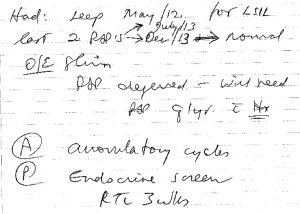 Had: Leep May/12. for LSIL
July/13
last 2 PAP's → Dec/13 → normal
O/E
PAP deferred – will need
PAP q 1yr. c̄
Ⓐ anovulatory cycles
Ⓟ Endocrine screen
RTC 3 wks